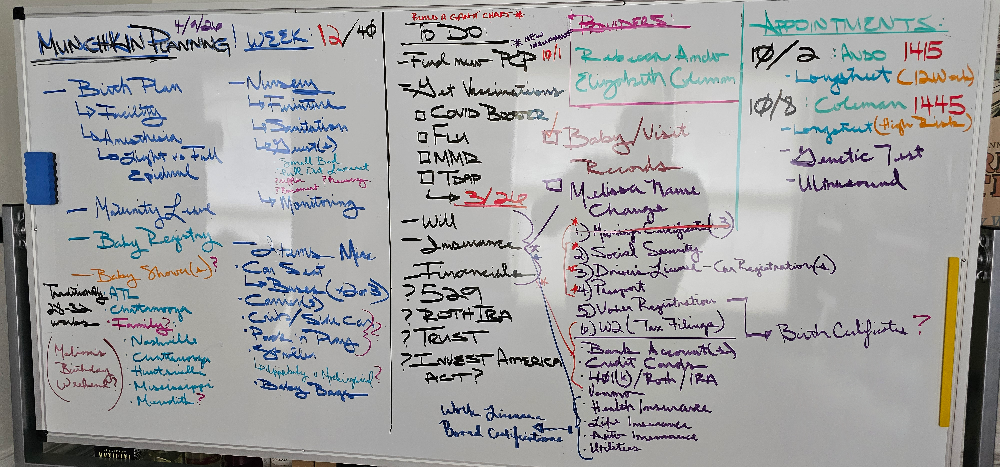 MUNCHKIN PLANNING!
WEEK: 12/40
- Birth Plan
↳ Facility
↳ Anesthesia
↳ Slight vs Full
Epidural
- Maternity Leave
- Baby Registry
- Baby Shower(s)?
Traditionally
weeks
ATL
· Chattanooga
· Family?
· Nashville
· Chattanooga
· Huntsville
· Mississippi
· Meredith?
Birthday
Weekend
- Nursery
↳ Furniture
↳ Sanitation
↳ Monitoring
· Car Seat
↳ Base
· Carrier(s)
· Pack n Play
· Stroller
· Baby Bags
BUILD A GANTT CHART *
TO DO:
* NEW INSURANCE
- Find new PCP
- Get Vaccinations
□ COVID BOOSTER
□ FLU
□ MMD
□ TDAP
↳ 3/26
- Will
- Insurance
- Financials
? 529
? ROTH IRA
? TRUST
? INVEST AMERICA
ACT?
Work License
Board Certifications
* BUILDERS:
10/1
Rebecca Ando
Elizabeth Coleman
□ Baby/Visit
Records
□ Melissa Name
Change
2) Social Security
3) Drivers License - Car Registration(s)
4) Passport
5) Voter Registration
↳ Birth Certificate?
6) W2 (Tax Filings)
· Bank Account(s)
· Credit Cards
· 401(k)/Roth/IRA
· Venmo
· Health Insurance
· Life Insurance
· Auto Insurance
· Utilities
APPOINTMENTS:
10/2: ANDO 1415
- Longstreet (12 Week)
10/8: Coleman 1445
- Longstreet (High Risk)
- Genetic Test
- Ultrasound